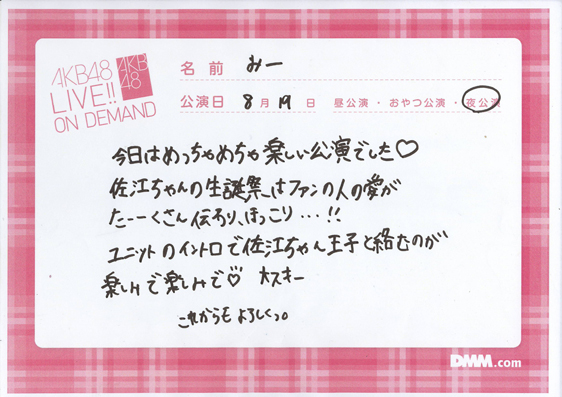 AKB48
LIVE!!
ON DEMAND
AKB
48
名前 みー
公演日 8月19日 昼公演・おやつ公演・夜公演
今日はめっちゃめちゃ楽しい公演でした♡
佐江ちゃんの生誕祭はファンの人の愛が
たーーくさん伝わり、ほっこり…!!
ユニットのイントロで佐江ちゃん王子と絡むのが
楽しみで楽しみで♡ 大スキー
これからもよろしくっ。
DMM.com